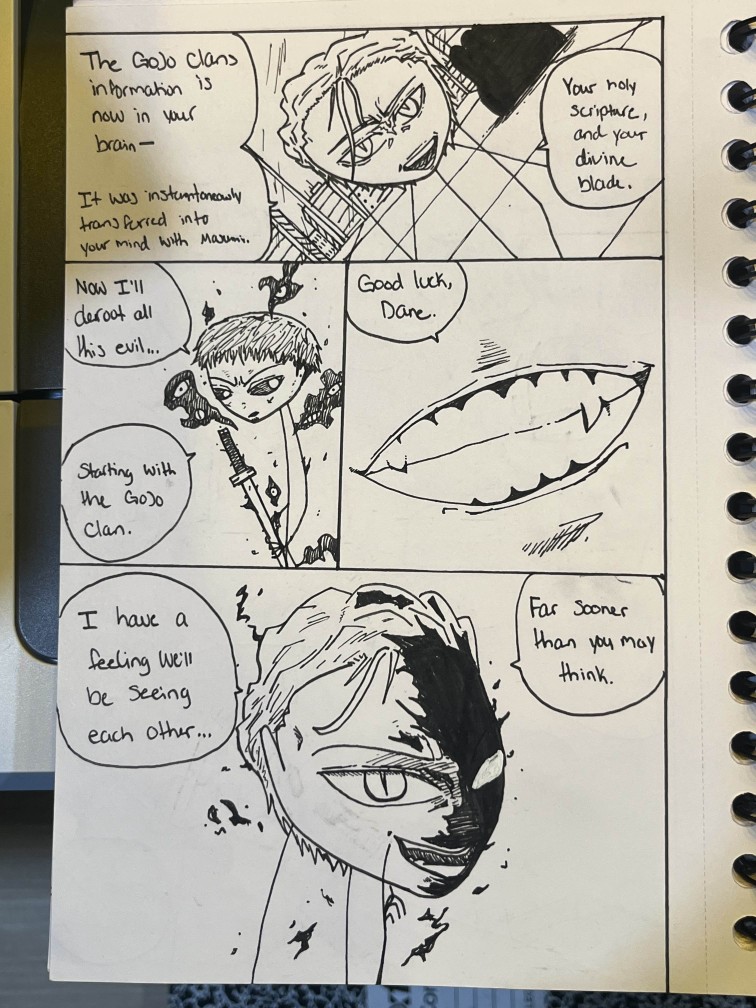 The GoJo Clans
information is
now in your
brain—
It was instantaneously
transferred into
your mind with Masumi.
Your holy
scripture,
and your
divine
blade.
Now I'll
deroot all
this evil...
Starting with
the GoJo
Clan.
Good luck,
Dane.
I have a
feeling We'll
be seeing
each other...
Far sooner
than you may
think.